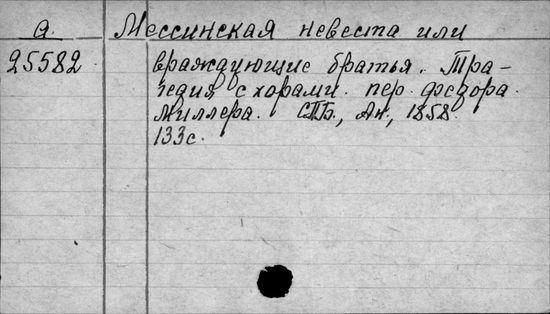 а. Мессинская невеста или
25582 враждующие братья. Тра-
гедия с хорами. пер. Федора
Миллера. СПБ., Ак., 1858.
133с.